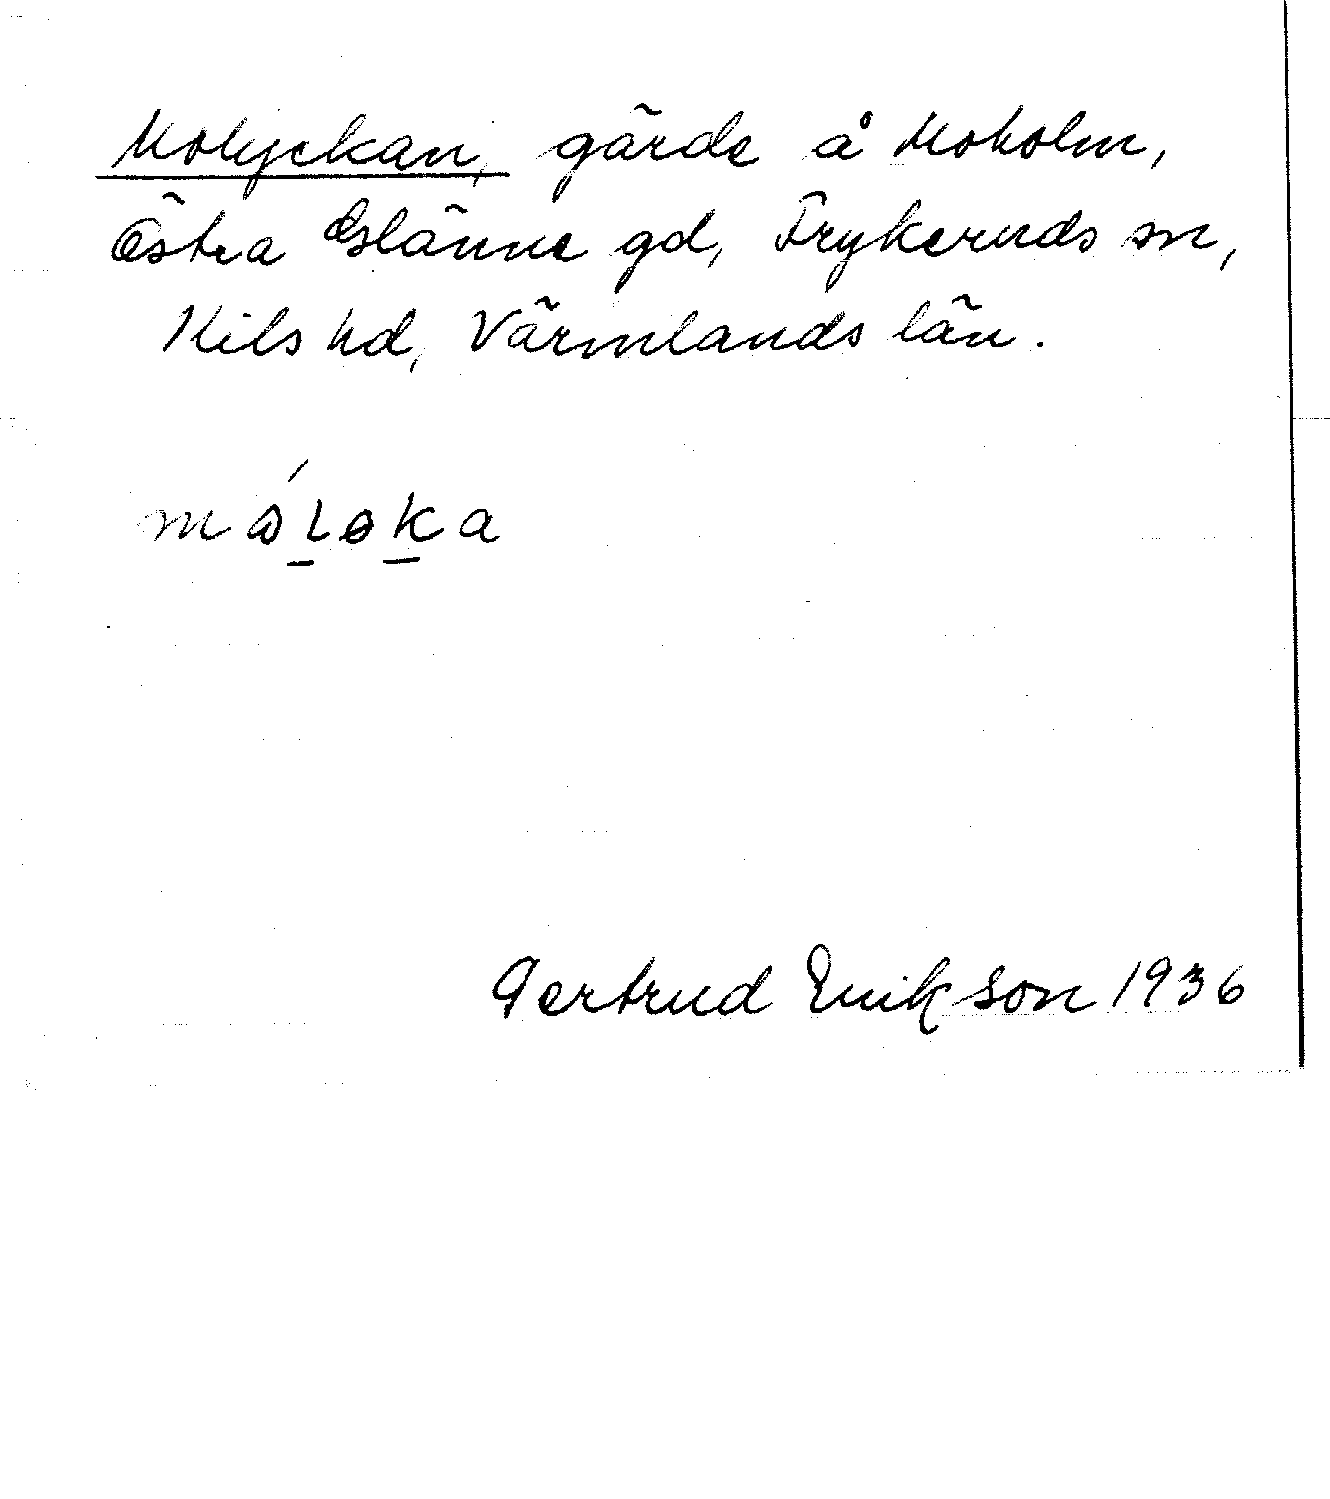 Molyckan, gärde å Moholm,
Östra Glänne gd, Frykeruds sn,
Kils hd, Värmlands län.
Gertrud Erikson 1936